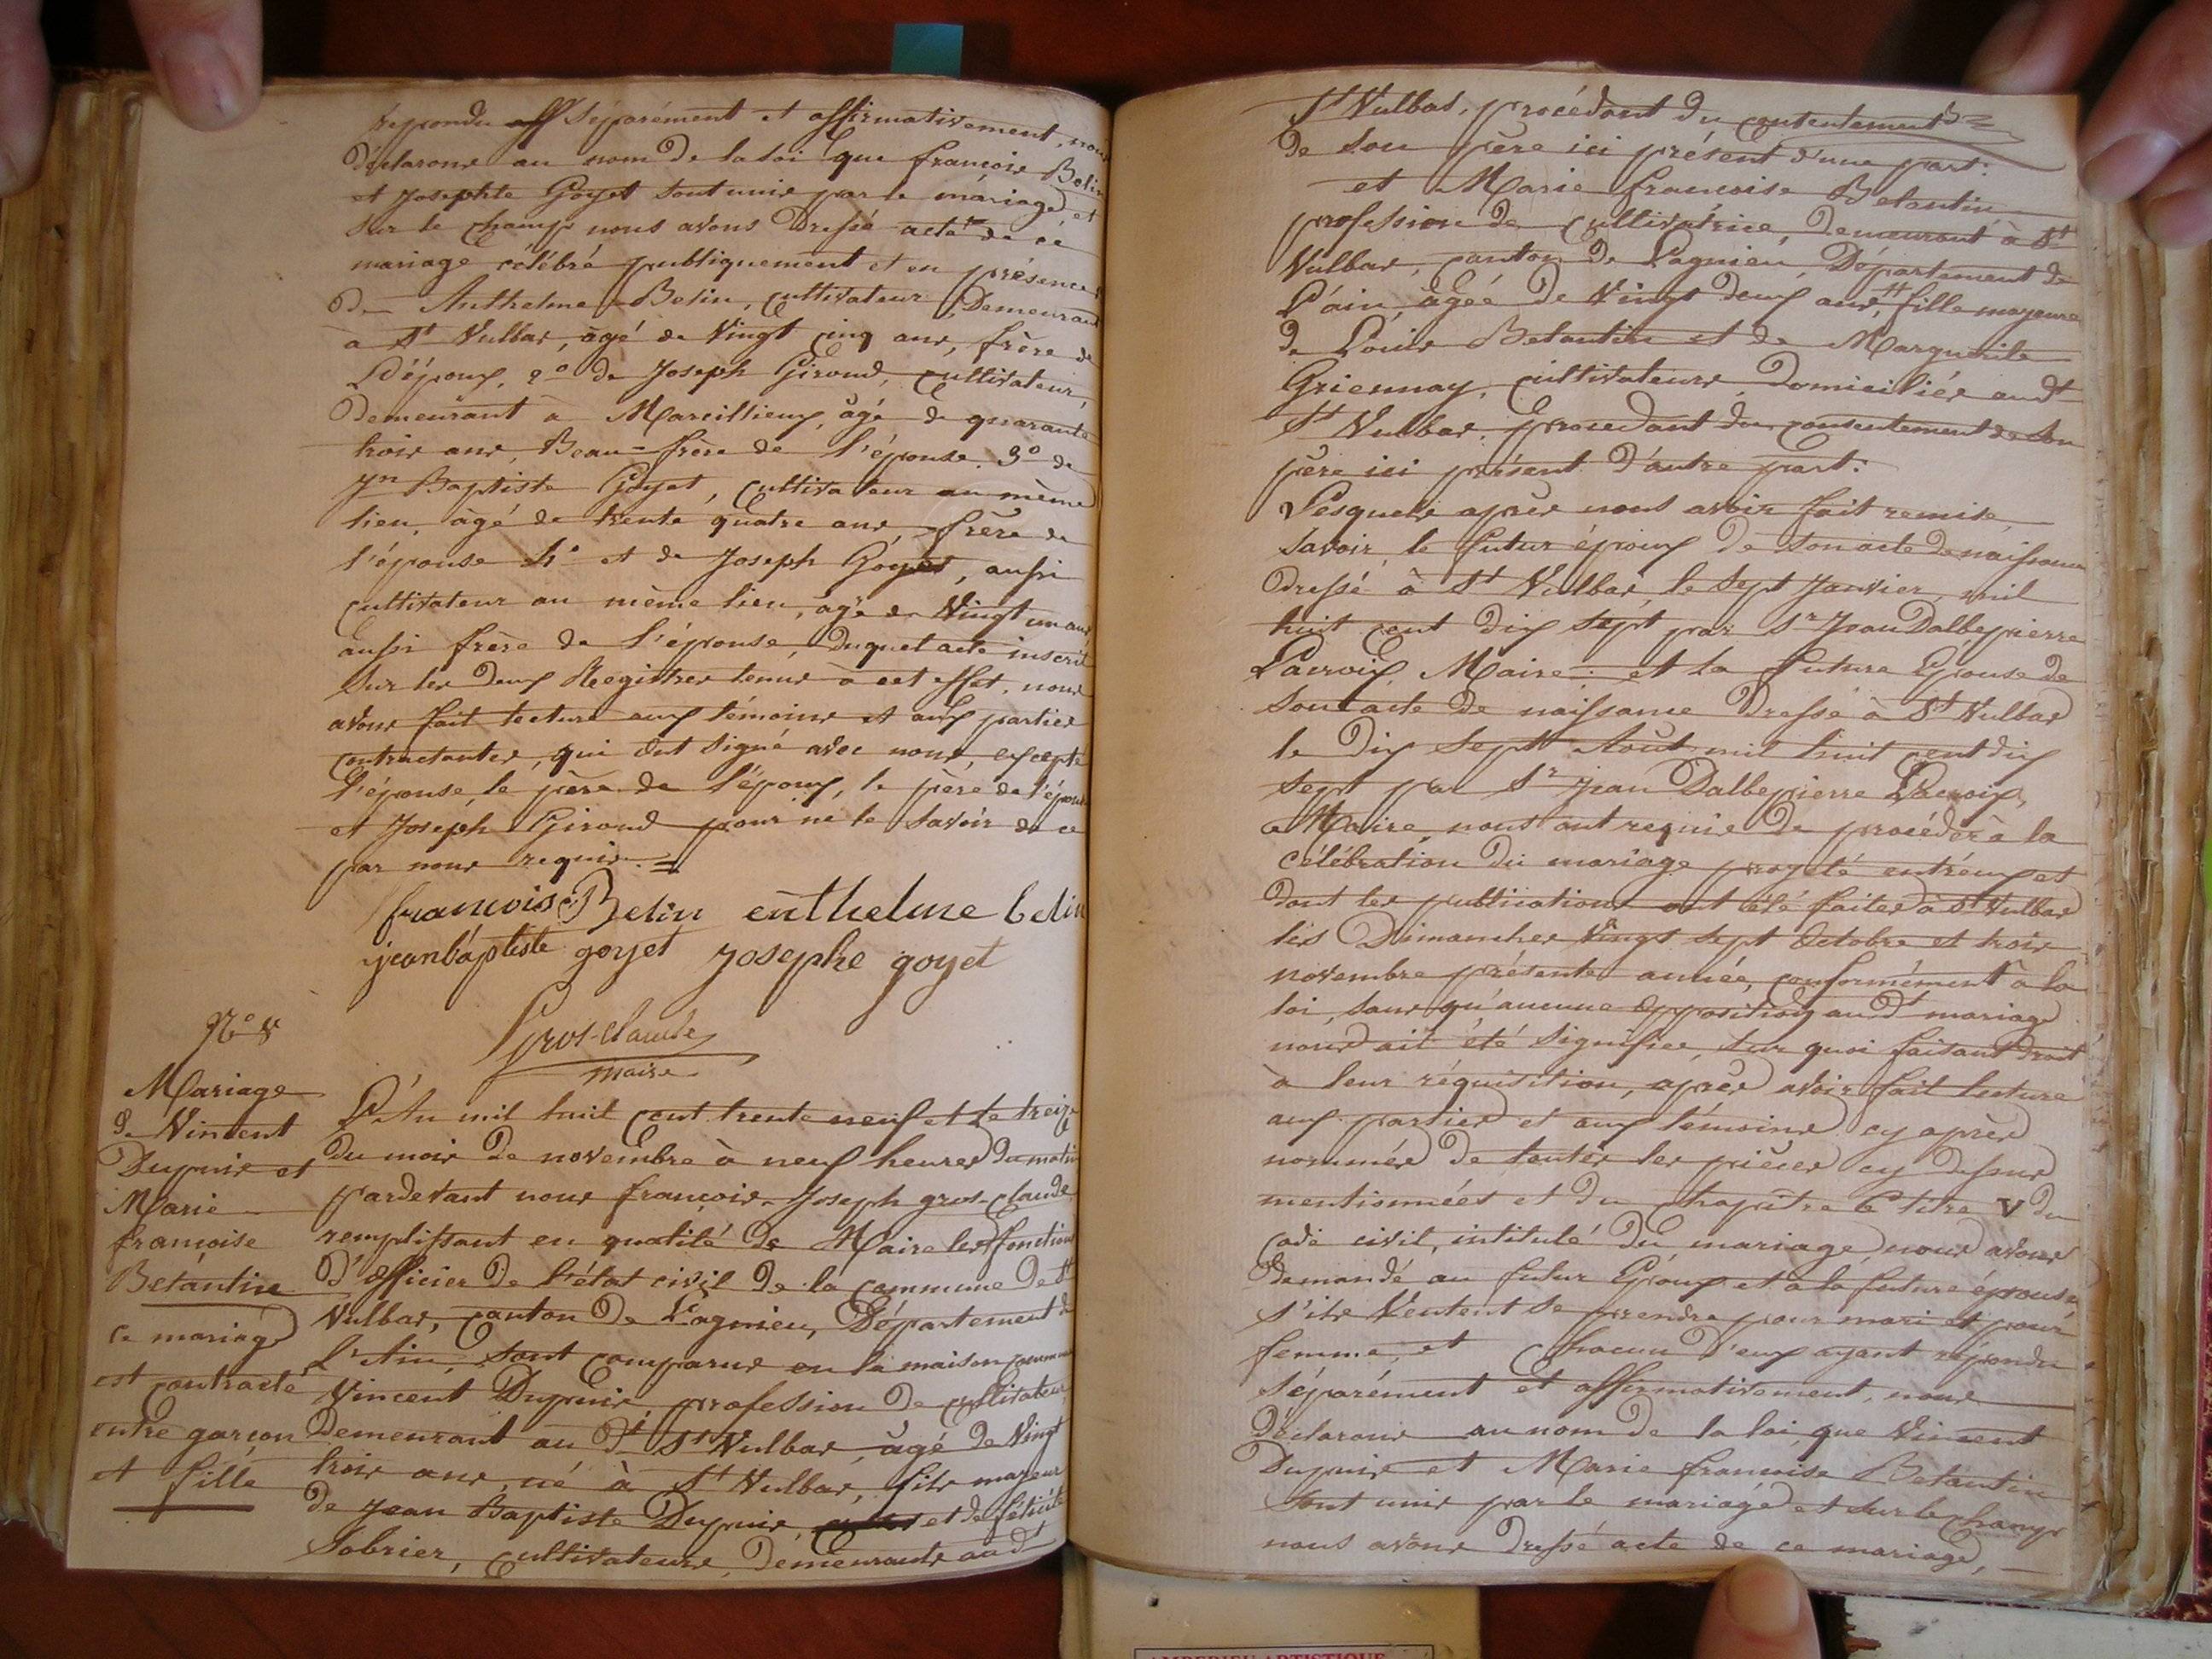 répondu aff séparément et affirmativement, nous
déclarons au nom de la loi que françois Belin
et Josephte Goyet sont unis par le mariage, et
sur le champ nous avons dressé acte de ce
mariage célébré publiquement et en présence
de Anthelme Belin, cultivateur Demeurant
à St Vulbas, âgé de Vingt cinq ans, frère de
L'époux, 2° de Joseph Giroud, cultivateur,
demeurant à Marcillieux, âgé de quarante
trois ans, Beau-frère de l'épouse. 3° de
Jn Baptiste Goyet, cultivateur au même
lieu, âgé de trente quatre ans, frère de
l'épouse 4° et de Joseph Goyet, aussi
cultivateur au même lieu, âgé de Vingt un ans
aussi frère de l'épouse, duquel acte inscrit
sur les deux Registres tenus à cet effet, nous
avons fait lecture aux témoins et aux parties
contractantes, qui ont signé avec nous, excepté
l'épouse, le père de l'époux, le père de l'épouse
et Joseph Giroud pour ne le savoir de ce
par nous requis.
françois Belin enthelme belin
jeanbaptiste goyet josephe goyet
Gros-Claude
maire
N° 8
Mariage
de Vincent
Dupuis et
Marie
françoise
Betantin
ce mariage
est contracté
entre garçon
et fille
L'An mil huit cent trente neuf et le treize
du mois de novembre à neuf heures du matin
pardevant nous françois-Joseph gros-claude
remplissant en qualité de Maire les fonctions
d'officier de l'état civil de la commune de St
Vulbas, canton de Lagnieu, Département de
l'Ain, sont comparus en la maison commune
Vincent Dupuis, profession de cultivateur
Demeurant au dt St Vulbas, âgé de Vingt
trois ans, né à St Vulbas, fils majeur
de Jean Baptiste Dupuis, et de félicité
Sobrier, cultivateurs, Demeurants audt
St Vulbas, procédant du contentement
de son père ici présent d'une part:
et Marie françoise Betantin
profession de cultivatrice, Demeurant à St
Vulbas, canton de Lagnieu, Département de
L'ain, âgée de Vingt deux ans, fille majeure
de Louis Betantin et de Marguerite
Griennay, cultivateurs, Domiciliés audt
St Vulbas, procedant du consentement de son
père ici présent d'autre part:
Lesquels après nous avoir fait remise,
savoir, le futur époux de son acte de naissance
dressé à St Vulbas, le sept Janvier, mil
huit cent dix sept par Sr Jean Dalbepierre
Lacroix, Maire: et la future Epouse de
son acte de naissance dressé à St Vulbas
le Dix Sept Août mil huit cent dix
sept par Sr Jean Dalbepierre Lacroix,
Maire, nous ont requis de procéder à la
célébration du mariage projeté entr'eux et
dont les publications ont été faites à St Vulbas
les Dimanches Vingt sept Octobre et trois
novembre présente année, conformément à la
loi, sans qu'aucune opposition audt mariage
nous ait été signifiée, sur quoi faisant droit
à leur réquisition, après avoir fait lecture
aux parties et aux témoins cy après
nommés de toutes les pièces cy dessus
mentionnées et du chapitre 6 titre V du
code civil, intitulé du mariage, nous avons
demandé au futur Epoux et à la future épouse
s'ils Veulent se prendre pour mari et pour
femme, et chacun d'eux ayant répondu
séparément et affirmativement, nous
Déclarons au nom de la loi, que Vincent
Dupuis et Marie françoise Betantin
sont unis par le mariage et sur le champ
nous avons dressé acte de ce mariage,
AMBERIEU ARTISTIQUE